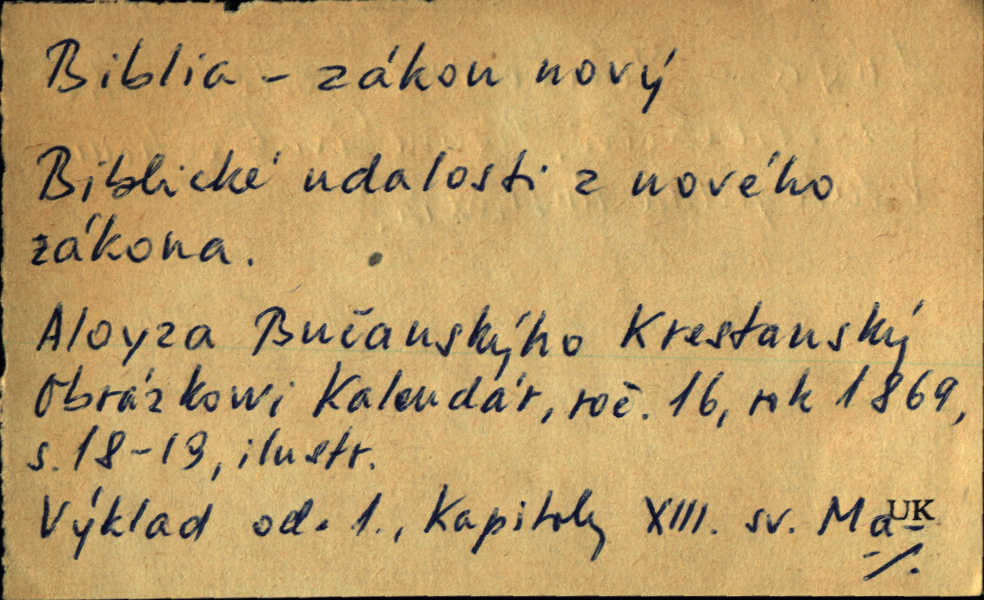 Biblia - zákon nový
Biblické udalosti z nového
zákona.
Aloyza Bučanského Krestanský
Obrázkowi Kalendár, roč. 16, rok 1869,
s. 18-19, ilustr.
Výklad od. 1., Kapitoly XIII. sv. Ma-
UK
./.